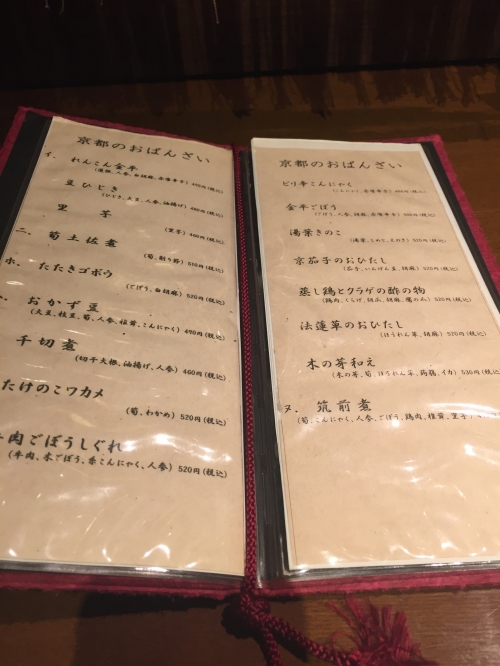 京都のおばんざい
イ. れんこん金平
豆ひじき
(ひじき、大豆、人参、油揚げ) 490円(税込)
里芋
(里芋) 460円(税込)
ニ. 筍土佐煮
(筍、削り節) 510円(税込)
ホ. たたきゴボウ
(ごぼう、白胡麻) 520円(税込)
おかず豆
(大豆、枝豆、筍、人参、椎茸、こんにゃく) 490円(税込)
千切煮
(切干大根、油揚げ、人参) 460円(税込)
たけのこワカメ
(筍、わかめ) 520円(税込)
牛肉ごぼうしぐれ
(牛肉、木ごぼう、糸こんにゃく、人参) 520円(税込)
京都のおばんざい
ピリ辛こんにゃく
金平ごぼう
湯葉きのこ
(湯葉、しめじ、えのき) 520円(税込)
京茄子のおひたし
(茄子、いんげん豆、胡麻) 520円(税込)
蒸し鶏とクラゲの酢の物
(鶏肉、くらげ、胡瓜、胡麻、鷹の爪) 520円(税込)
法蓮草のおひたし
(ほうれん草、胡麻) 520円(税込)
木の芽和え
(木の芽、筍、ほうれん草、蒟蒻、イカ) 530円(税込)
ヌ. 筑前煮
(筍、こんにゃく、人参、ごぼう、鶏肉、椎茸、里芋)